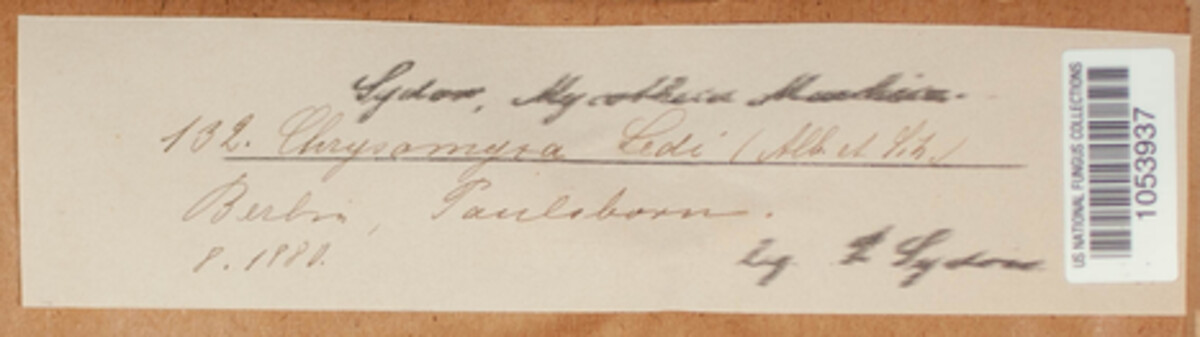 Sydow, Mycotheca Marchica.
132. Chrysomyxa Ledi (Alb. et Sch.)
Berlin, Paulsborn.
8. 1880.
leg. P. Sydow
US NATIONAL FUNGUS COLLECTIONS
1053937